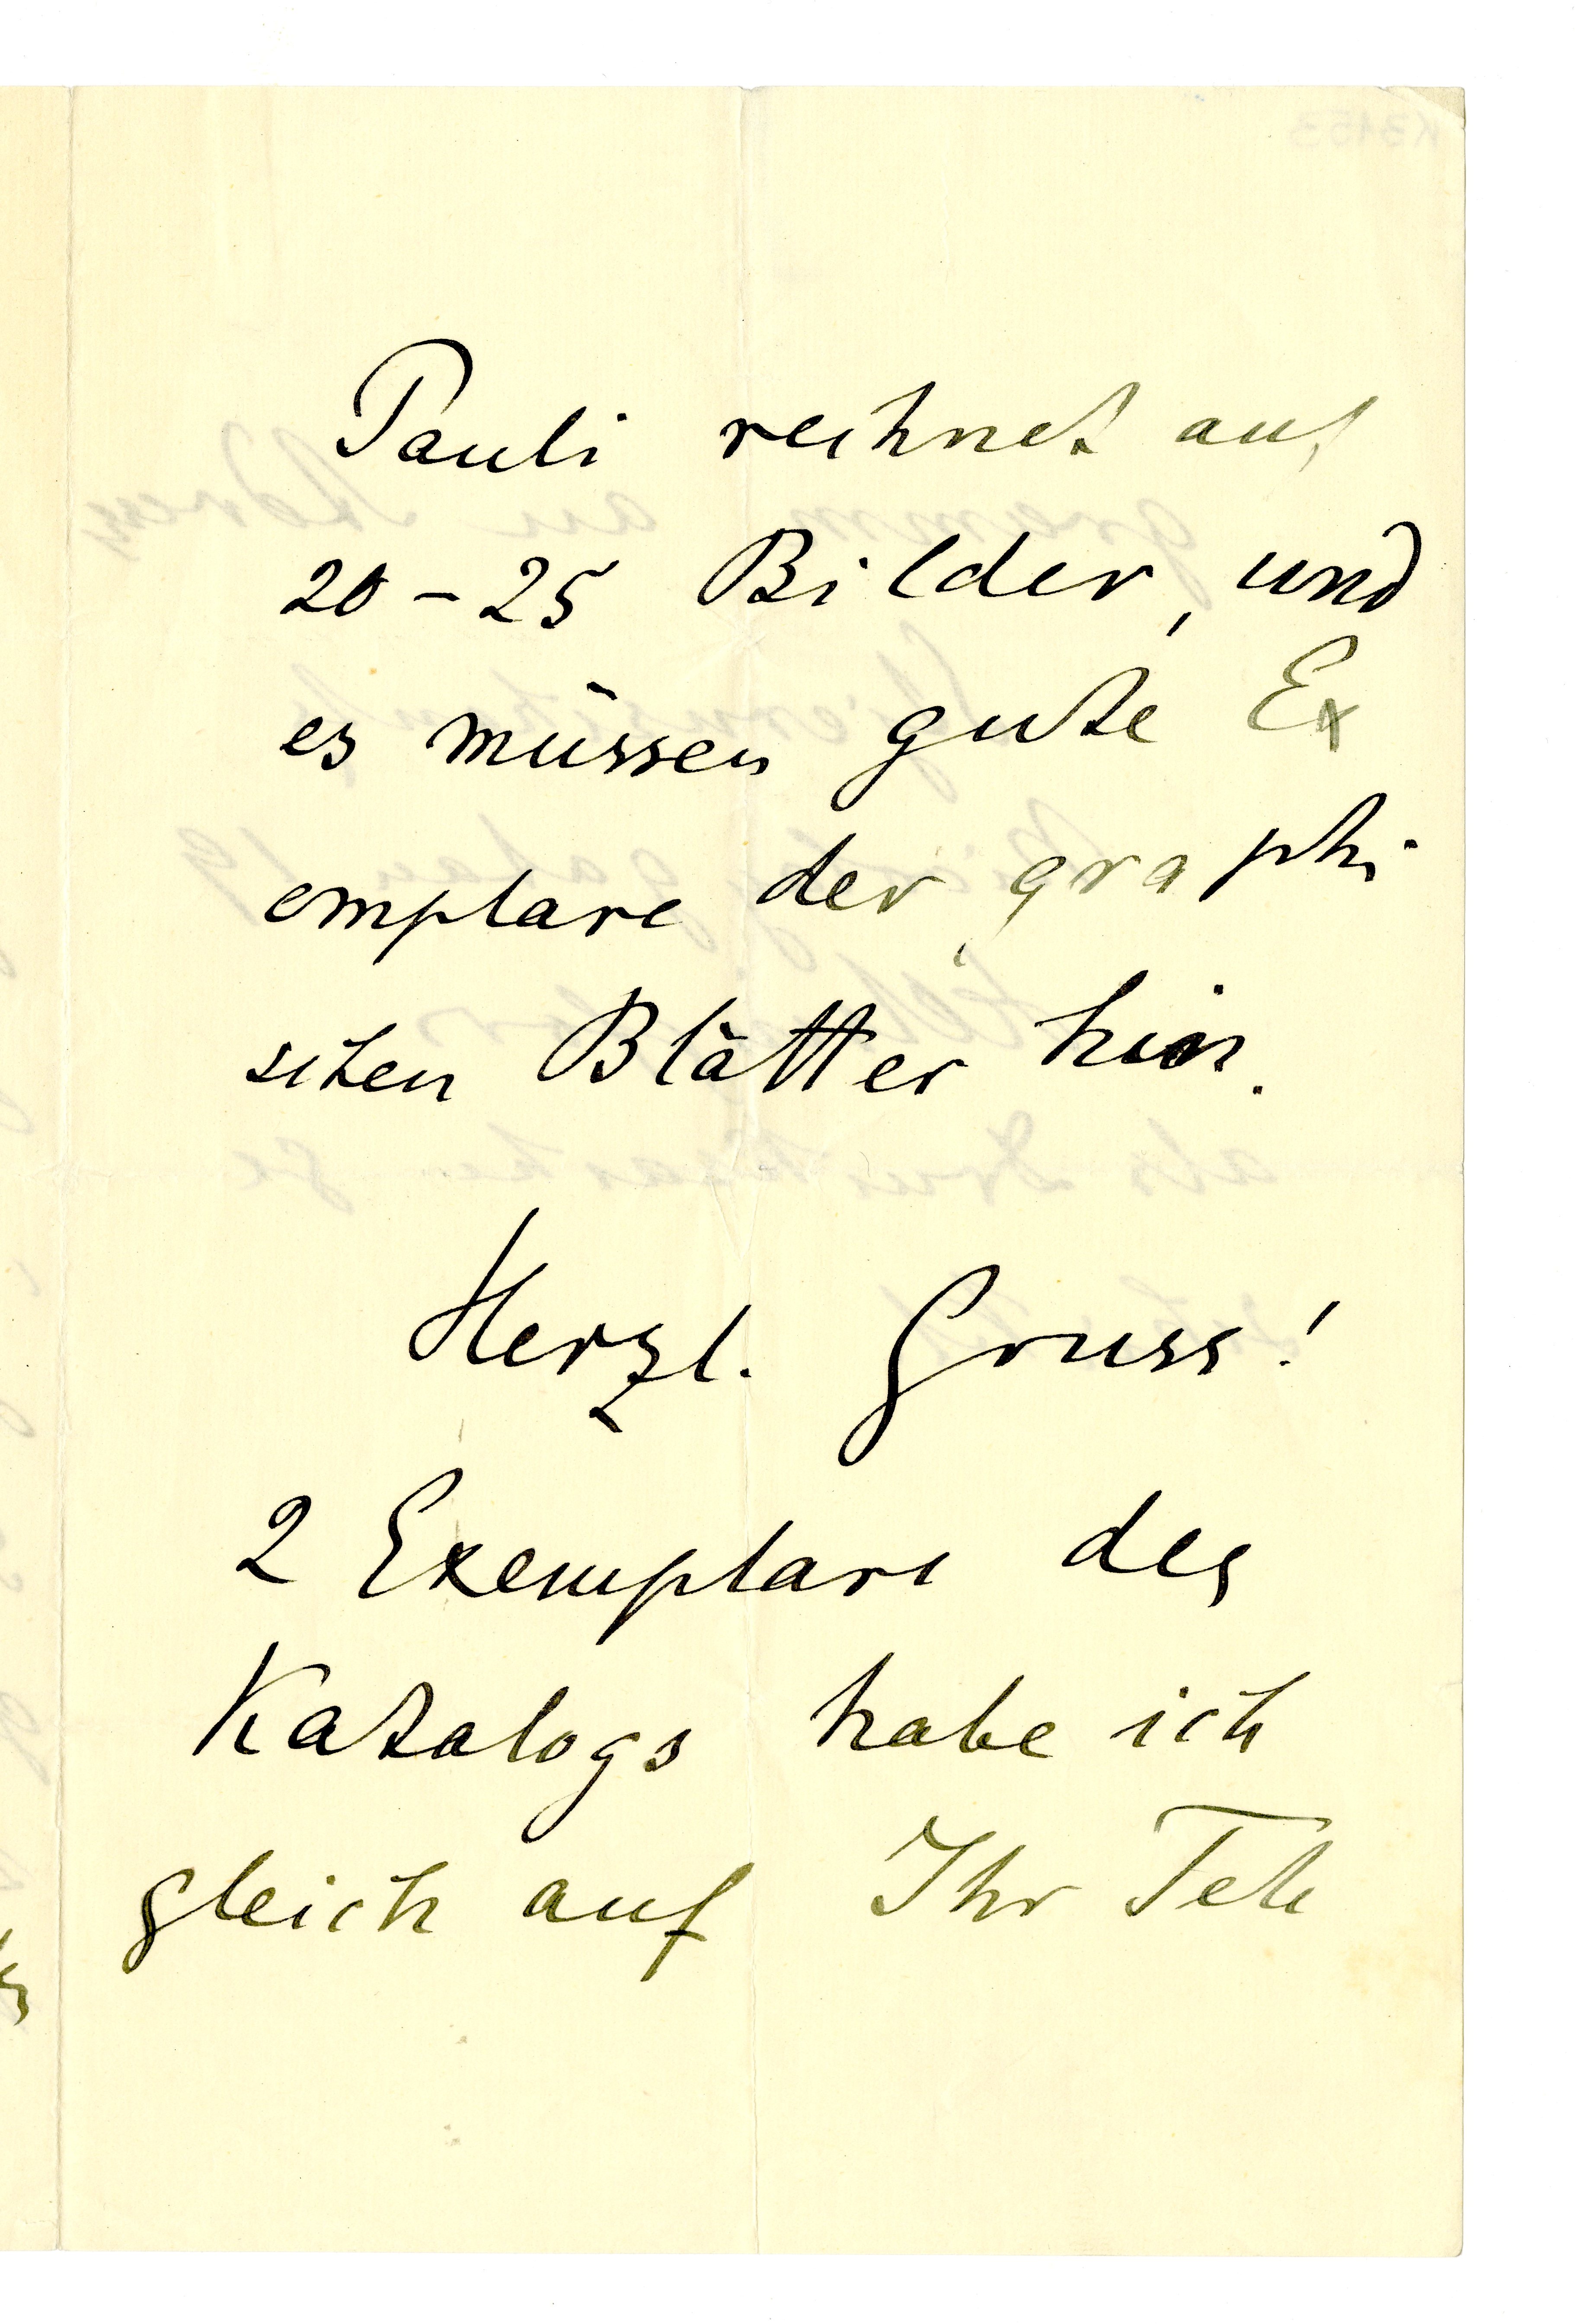 Pauli rechnet auf
20 – 25 Bilder, und
es müssen gute Ex
emplare der graphi
schen Blätter hin.
Herzl. Gruss!
2 Exemplare des
Katalogs habe ich
gleich auf Ihr Tele